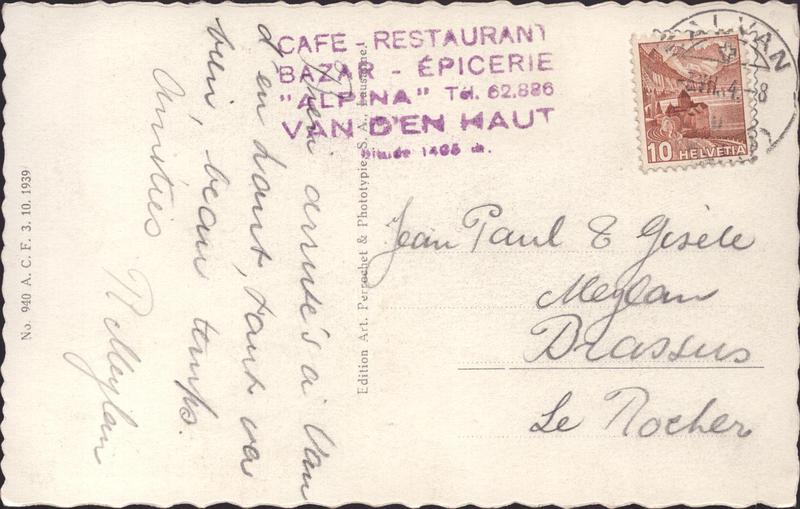 CAFE - RESTAURANT
BAZAR - ÉPICERIE
"ALPINA" Tél. 62.886
VAN D'EN HAUT
altitude 1405 m.
SALVAN
10 HELVETIA
Jean Paul & Gisèle
Meylan
Brassus
Le Rocher
arrivés à Van
d'en haut, tout va
bien, beau temps.
Amitiés
R Meylan
Edition Art. Perrochet & Phototypie S. A. Lausanne
No. 940 A. C. F. 3. 10. 1939